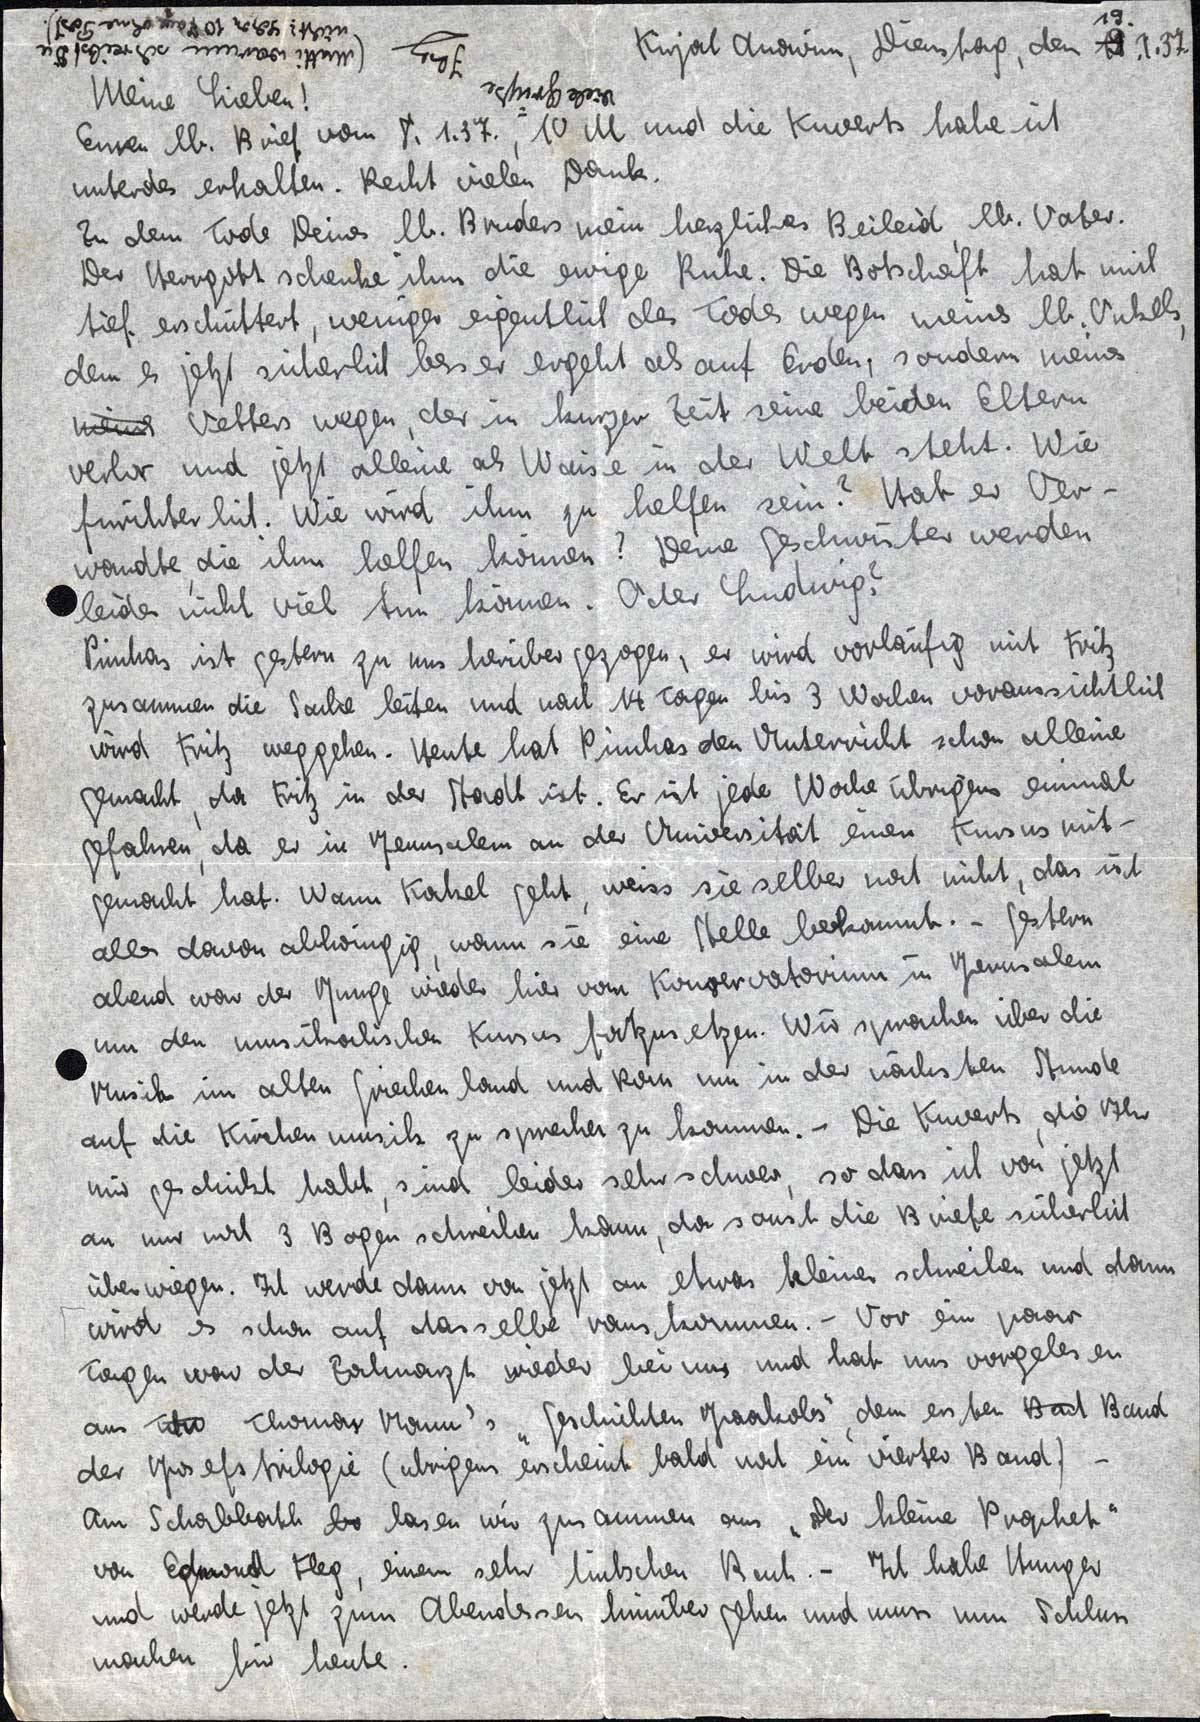 Kirjat Anavim, Dienstag, den 19.1.37
Meine Lieben!
Euren lb. Brief vom 7.1.37., 10 M und die Kuverts habe ich
unterdes erhalten. Recht vielen Dank.
Zu dem Tode Deines lb. Bruders mein herzliches Beileid, lb. Vater.
Der Herrgott schenke ihm die ewige Ruhe. Die Botschaft hat mich
tief erschüttert, weniger eigentlich des Todes wegen meines lb. Onkels,
dem es jetzt sicherlich besser ergeht als auf Erden, sondern meines
meines Vetters wegen, der in kurzer Zeit seine beiden Eltern
verlor und jetzt alleine als Waise in der Welt steht. Wie
fürchterlich. Wie wird ihm zu helfen sein? Hat er Ver-
wandte, die ihm helfen können? Deine Geschwister werden
leider nicht viel tun können. Oder Ludwig?
Pinchas ist gestern zu uns herübergezogen, er wird vorläufig mit Fritz
zusammen die Sache leiten und nach 14 Tagen bis 3 Wochen voraussichtlich
wird Fritz weggehen. Heute hat Pinchas den Unterricht schon alleine
gemacht, da Fritz in der Stadt ist. Er ist jede Woche übrigens einmal
gefahren, da er in Jerusalem an der Universität einen Kursus mit-
gemacht hat. Wann Rahel geht, weiss sie selber noch nicht, das ist
alles davon abhängig, wann sie eine Stelle bekommt. - Gestern
abend war der Junge wieder hier vom Konservatorium in Jerusalem
um den musikalischen Kursus fortzusetzen. Wir sprachen über die
Musik im alten Griechenland und kam um in der nächsten Stunde
auf die Kirchenmusik zu sprechen zu kommen. - Die Kuverts, die Ihr
mir geschickt habt, sind leider sehr schwer, so dass ich von jetzt
an nur noch 3 Bogen schreiben kann, da sonst die Briefe sicherlich
überwiegen. Ich werde dann von jetzt an etwas kleiner schreiben und dann
wird es schon auf dasselbe rauskommen. - Vor ein paar
Tagen war der Zahnarzt wieder bei uns und hat uns vorgelesen
aus Thomas Mann's "Geschichten Jaakobs", dem ersten Band
der Josefstrilogie (übrigens erscheint bald noch ein vierter Band) -
Am Schabbath lasen wir zusammen aus "Der kleine Prophet"
von Edmond Fleg, einem sehr hübschen Buch. - Ich habe Hunger
und werde jetzt zum Abendessen hinüber gehen und muss nun Schluss
machen für heute.
Viele Grüsse
(Mutti warum schreibst Du
nicht? Schon 10 Tage ohne Post).